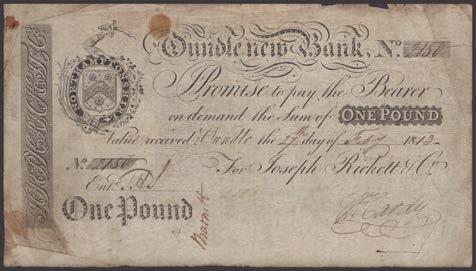 Oundle new Bank, No. 2150
NORTHAMPTONSHIRE
I Promise to pay the Bearer
on demand the Sum of ONE POUND
Value received Oundle the day of 1812
No. 2150 For Joseph Rickett & Co.
Entd.
One Pound